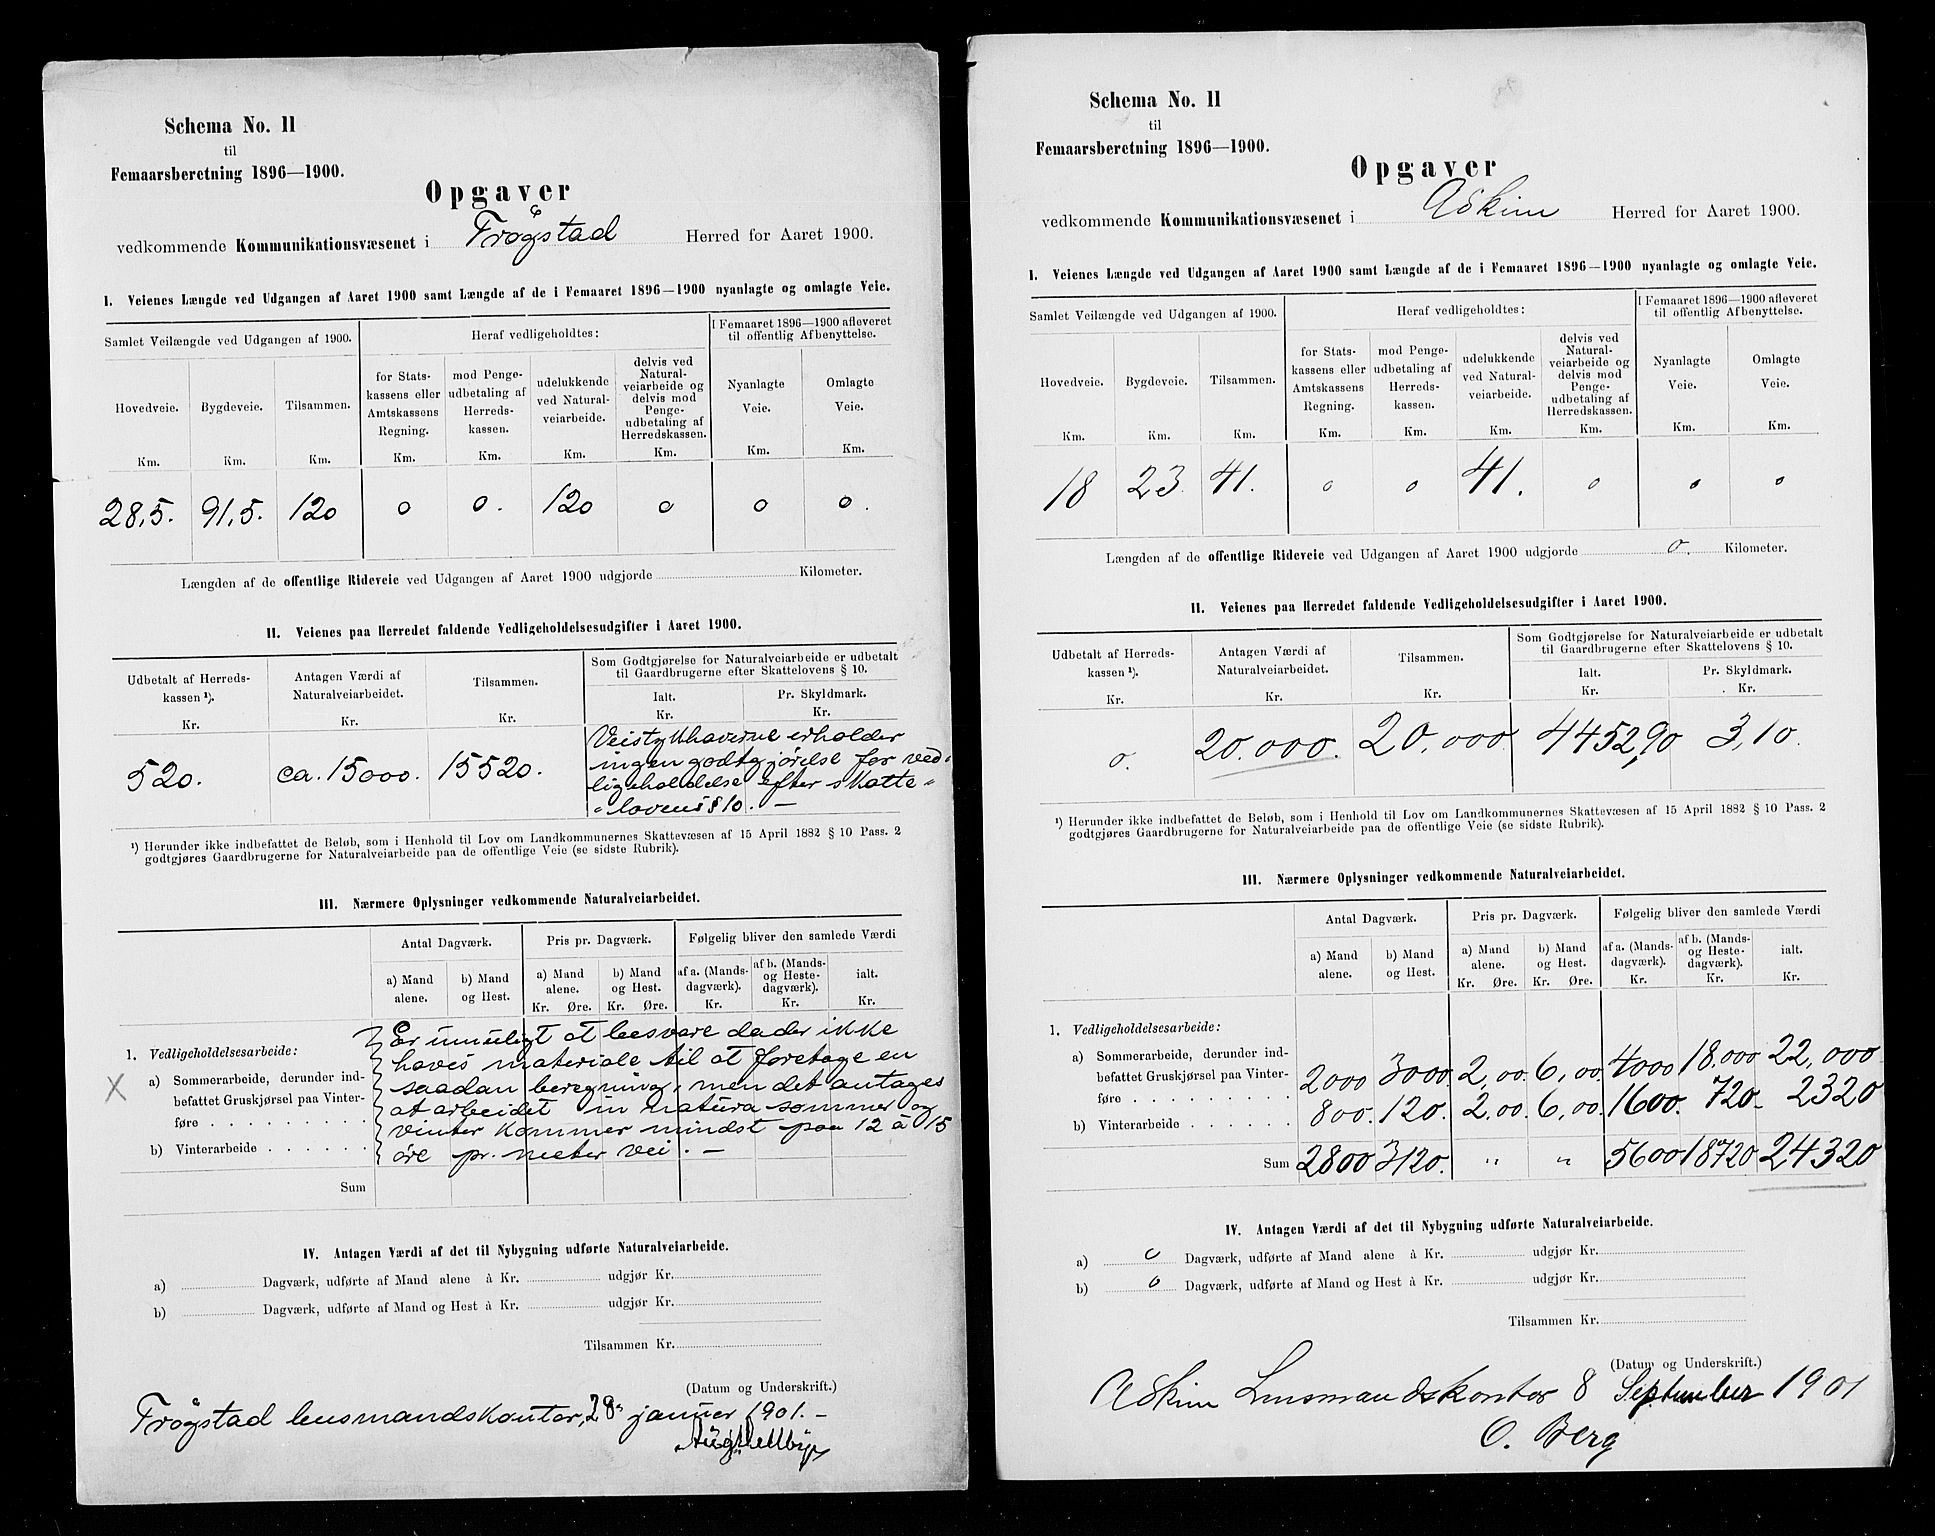 Schema No. 11
til
Femaarsberetning 1896—1900.
Opgaver
vedkommende Kommunikationsvæsenet i Trøgstad Herred for Aaret 1900.
I. Veienes Længde ved Udgangen af Aaret 1900 samt Længde af de i Femaaret 1896—1900 nyanlagte og omlagte Veie.
Samlet Veilængde ved Udgangen af 1900.
Heraf vedligeholdtes:
I Femaaret 1896—1900 afleveret
til offentlig Afbenyttelse.
Hovedveie. Bygdeveie. Tilsammen.
for Stats-
kassens eller
Amtskassens
Regning.
mod Penge-
udbetaling af
Herreds-
kassen.
udelukkende
ved Natural-
veiarbeide.
delvis ved
Natural-
veiarbeide og
delvis mod
Penge-
udbetaling af
Herredskassen.
Nyanlagte
Veie.
Omlagte
Veie.
Km. Km. Km. Km. Km. Km. Km. Km. Km.
28,5. 91,5. 120 o o. 120 o o o.
Længden af de offentlige Rideveie ved Udgangen af Aaret 1900 udgjorde Kilometer.
II. Veienes paa Herredet faldende Vedligeholdelsesudgifter i Aaret 1900.
Udbetalt af Herreds-
kassen ¹).
Kr.
Antagen Værdi af
Naturalveiarbeidet.
Kr.
Tilsammen.
Kr.
Som Godtgjørelse for Naturalveiarbeide er udbetalt
til Gaardbrugerne efter Skattelovens § 10.
Ialt.
Kr.
Pr. Skyldmark.
Kr.
520. ca. 15000. 15520.
Veistykkhaverne erholder
ingen godtgjørelse for ved-
ligeholdelse efter skatte-
lovens § 10. —
¹) Herunder ikke indbefattet de Beløb, som i Henhold til Lov om Landkommunernes Skattevæsen af 15 April 1882 § 10 Pass. 2
godtgjøres Gaardbrugerne for Naturalveiarbeide paa de offentlige Veie (se sidste Rubrik).
III. Nærmere Oplysninger vedkommende Naturalveiarbeidet.
Antal Dagværk. Pris pr. Dagværk. Følgelig bliver den samlede Værdi
a) Mand
alene.
b) Mand
og Hest.
a) Mand
alene.
Kr. Øre.
b) Mand
og Hest.
Kr. Øre.
af a. (Mands-
dagværk).
Kr.
af b. (Mands-
og Heste-
dagværk).
Kr.
ialt.
Kr.
1. Vedligeholdelsesarbeide:
X a) Sommerarbeide, derunder ind-
befattet Gruskjørsel paa Vinter-
føre
b) Vinterarbeide
Sum
Er umuligt at besvare da der ikke
haves materiale til at foretage en
saadan beregning, men det antages
at arbeidet in natura sommer og
vinter kommer mindst paa 12 à 15
øre pr. meter vei. —
IV. Antagen Værdi af det til Nybygning udførte Naturalveiarbeide.
a) Dagværk, udførte af Mand alene à Kr. udgjør Kr.
b) Dagværk, udførte af Mand og Hest à Kr. udgjør Kr.
Tilsammen Kr.
(Datum og Underskrift.)
Trøgstad lensmandskontor, 28. januar 1901. —
Schema No. 11
til
Femaarsberetning 1896—1900.
Opgaver
vedkommende Kommunikationsvæsenet i Askim Herred for Aaret 1900.
I. Veienes Længde ved Udgangen af Aaret 1900 samt Længde af de i Femaaret 1896—1900 nyanlagte og omlagte Veie.
Samlet Veilængde ved Udgangen af 1900.
Heraf vedligeholdtes:
I Femaaret 1896—1900 afleveret
til offentlig Afbenyttelse.
Hovedveie. Bygdeveie. Tilsammen.
for Stats-
kassens eller
Amtskassens
Regning.
mod Penge-
udbetaling af
Herreds-
kassen.
udelukkende
ved Natural-
veiarbeide.
delvis ved
Natural-
veiarbeide og
delvis mod
Penge-
udbetaling af
Herredskassen.
Nyanlagte
Veie.
Omlagte
Veie.
Km. Km. Km. Km. Km. Km. Km. Km. Km.
18 23. 41. o o 41. o o o
Længden af de offentlige Rideveie ved Udgangen af Aaret 1900 udgjorde o. Kilometer.
II. Veienes paa Herredet faldende Vedligeholdelsesudgifter i Aaret 1900.
Udbetalt af Herreds-
kassen ¹).
Kr.
Antagen Værdi af
Naturalveiarbeidet.
Kr.
Tilsammen.
Kr.
Som Godtgjørelse for Naturalveiarbeide er udbetalt
til Gaardbrugerne efter Skattelovens § 10.
Ialt.
Kr.
Pr. Skyldmark.
Kr.
o. 20.000. 20,000. 4452,90 3,10.
¹) Herunder ikke indbefattet de Beløb, som i Henhold til Lov om Landkommunernes Skattevæsen af 15 April 1882 § 10 Pass. 2
godtgjøres Gaardbrugerne for Naturalveiarbeide paa de offentlige Veie (se sidste Rubrik).
III. Nærmere Oplysninger vedkommende Naturalveiarbeidet.
Antal Dagværk. Pris pr. Dagværk. Følgelig bliver den samlede Værdi
a) Mand
alene.
b) Mand
og Hest.
a) Mand
alene.
Kr. Øre.
b) Mand
og Hest.
Kr. Øre.
af a. (Mands-
dagværk).
Kr.
af b. (Mands-
og Heste-
dagværk).
Kr.
ialt.
Kr.
1. Vedligeholdelsesarbeide:
a) Sommerarbeide, derunder ind-
befattet Gruskjørsel paa Vinter-
føre 2000 3000. 2,00. 6,00. 4000 18.000 22,000
b) Vinterarbeide 800. 120. 2.00. 6,00. 1600. 720. 2320
Sum 2800 3120. " " 5600 18720 24320
IV. Antagen Værdi af det til Nybygning udførte Naturalveiarbeide.
a) o Dagværk, udførte af Mand alene à Kr. udgjør Kr.
b) o Dagværk, udførte af Mand og Hest à Kr. udgjør Kr.
Tilsammen Kr.
(Datum og Underskrift.)
Askim Lensmandskontor 8 September 1901
O. Berg